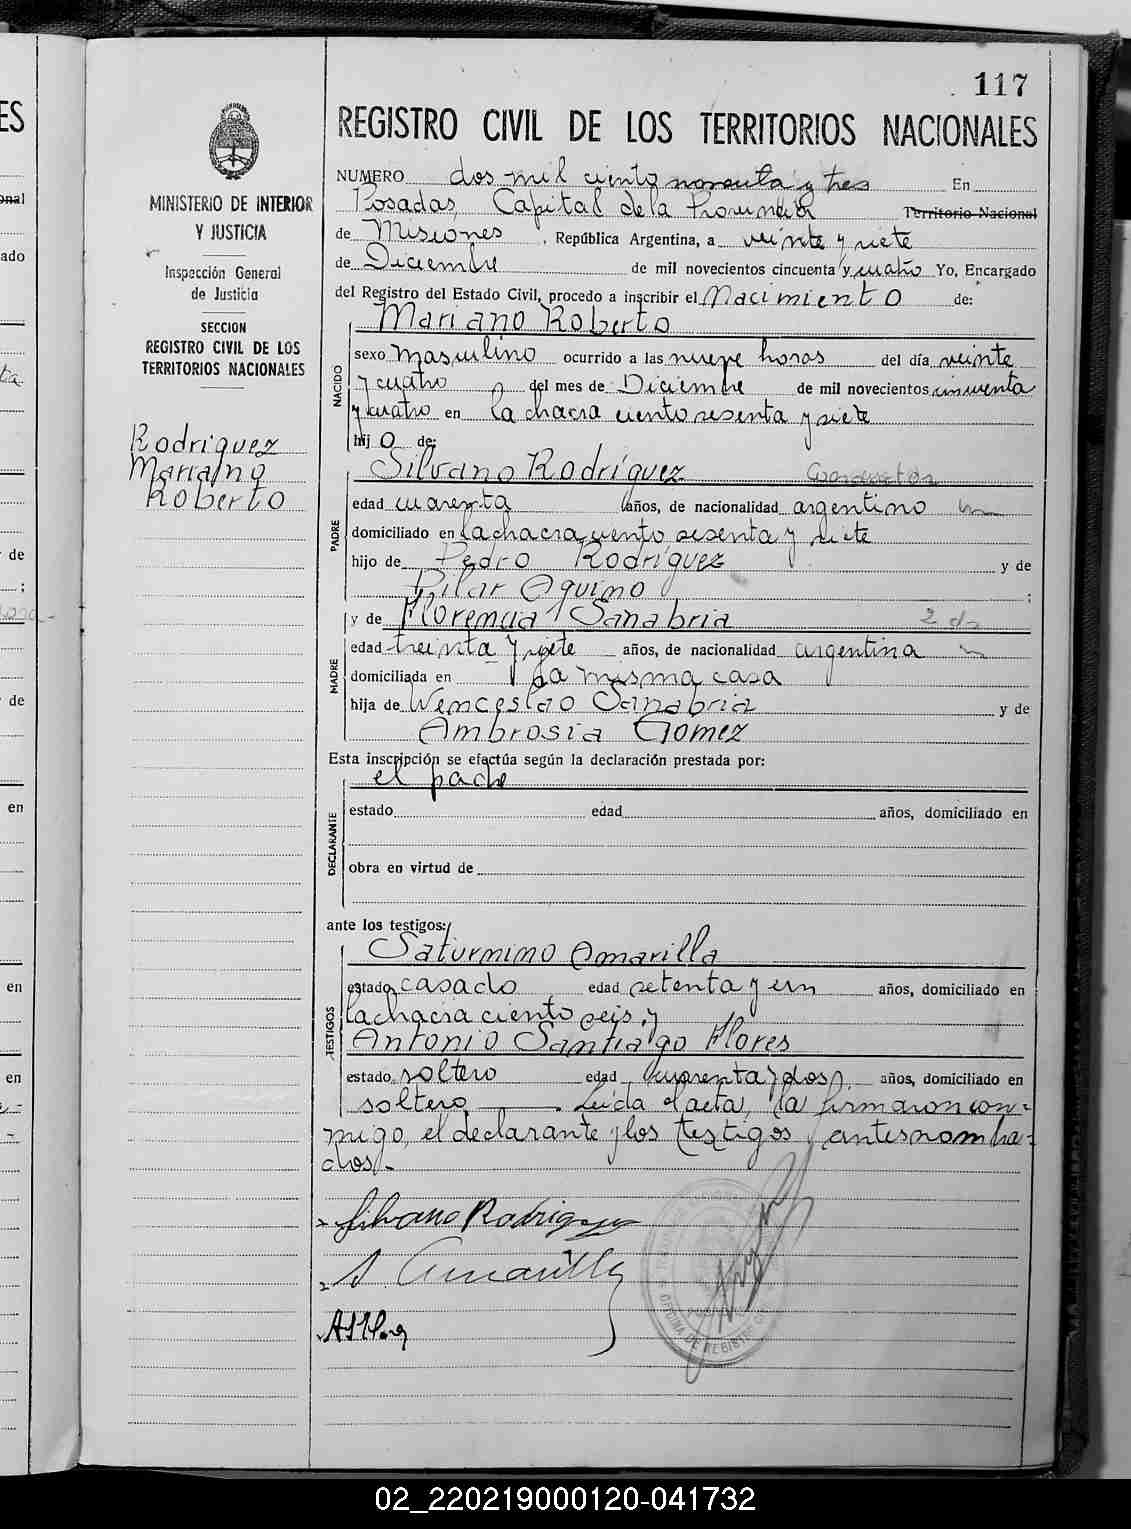 117
REGISTRO CIVIL DE LOS TERRITORIOS NACIONALES
MINISTERIO DE INTERIOR
Y JUSTICIA
Inspección General
de Justicia
SECCION
REGISTRO CIVIL DE LOS
TERRITORIOS NACIONALES
Rodriguez
Mariano
Roberto
NUMERO dos mil ciento noventa y tres En
Posadas, Capital de la Provincia Territorio Nacional
de Misiones, República Argentina, a veinte y siete
de Diciembre de mil novecientos cincuenta y cuatro Yo, Encargado
del Registro del Estado Civil, procedo a inscribir el Nacimiento de:
Mariano Roberto
NACIDO
sexo masculino ocurrido a las nueve horas del día veinte
y cuatro del mes de Diciembre de mil novecientos cincuenta
y cuatro en la chacra ciento sesenta y siete
hij o de:
Silvano Rodríguez
PADRE
edad cuarenta años, de nacionalidad argentino
domiciliado en la chacra ciento sesenta y siete
hijo de Pedro Rodríguez y de
Pilar Aquino ;
y de Florencia Sanabria 2 da
MADRE
edad treinta y siete años, de nacionalidad argentina
domiciliada en la misma casa
hija de Wenceslao Sanabria y de
Ambrosia Gomez
Esta inscripción se efectúa según la declaración prestada por:
el padre
DECLARANTE
estado edad años, domiciliado en
obra en virtud de
ante los testigos:
Saturnino Amarilla
TESTIGOS
estado casado edad setenta y un años, domiciliado en
la chacra ciento seis, y
Antonio Santiago Flores
estado soltero edad cuarenta y dos años, domiciliado en
soltero. Leída el acta, la firmaron con-
migo, el declarante y los testigos antes nombra-
dos.-
Silvano Rodriguez
S. Amarilla
ASFlores
OFICINA DE REGISTRO
02_220219000120-041732